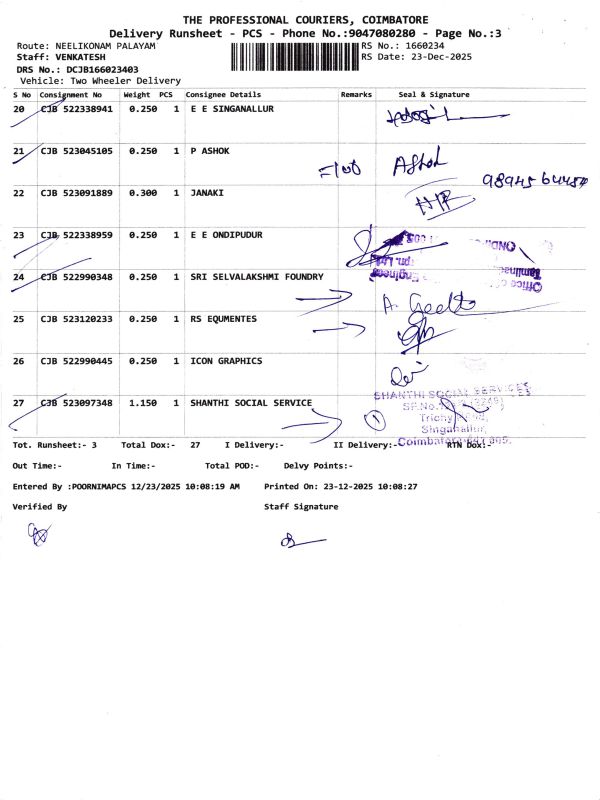 THE PROFESSIONAL COURIERS, COIMBATORE
Delivery Runsheet - PCS - Phone No.:9047080280 - Page No.:3
Route: NEELIKONAM PALAYAM RS No.: 1660234
Staff: VENKATESH RS Date: 23-Dec-2025
DRS No.: DCJB166023403
Vehicle: Two Wheeler Delivery
S No Consignment No Weight PCS Consignee Details Remarks Seal & Signature
20 CJB 522338941 0.250 1 E E SINGANALLUR
21 CJB 523045105 0.250 1 P ASHOK Ashok
9894564484
22 CJB 523091889 0.300 1 JANAKI
23 CJB 522338959 0.250 1 E E ONDIPUDUR
24 CJB 522990348 0.250 1 SRI SELVALAKSHMI FOUNDRY
A. Geetha
25 CJB 523120233 0.250 1 RS EQUMENTES
26 CJB 522990445 0.250 1 ICON GRAPHICS
SHANTHI SOCIAL SERVICES
27 CJB 523097348 1.150 1 SHANTHI SOCIAL SERVICE
Trichy Road,
1
Singanallur,
Coimbatore-641 005.
Tot. Runsheet:- 3 Total Dox:- 27 I Delivery:- II Delivery:- RTN Dox:-
Out Time:- In Time:- Total POD:- Delvy Points:-
Entered By :POORNIMAPCS 12/23/2025 10:08:19 AM Printed On: 23-12-2025 10:08:27
Verified By Staff Signature